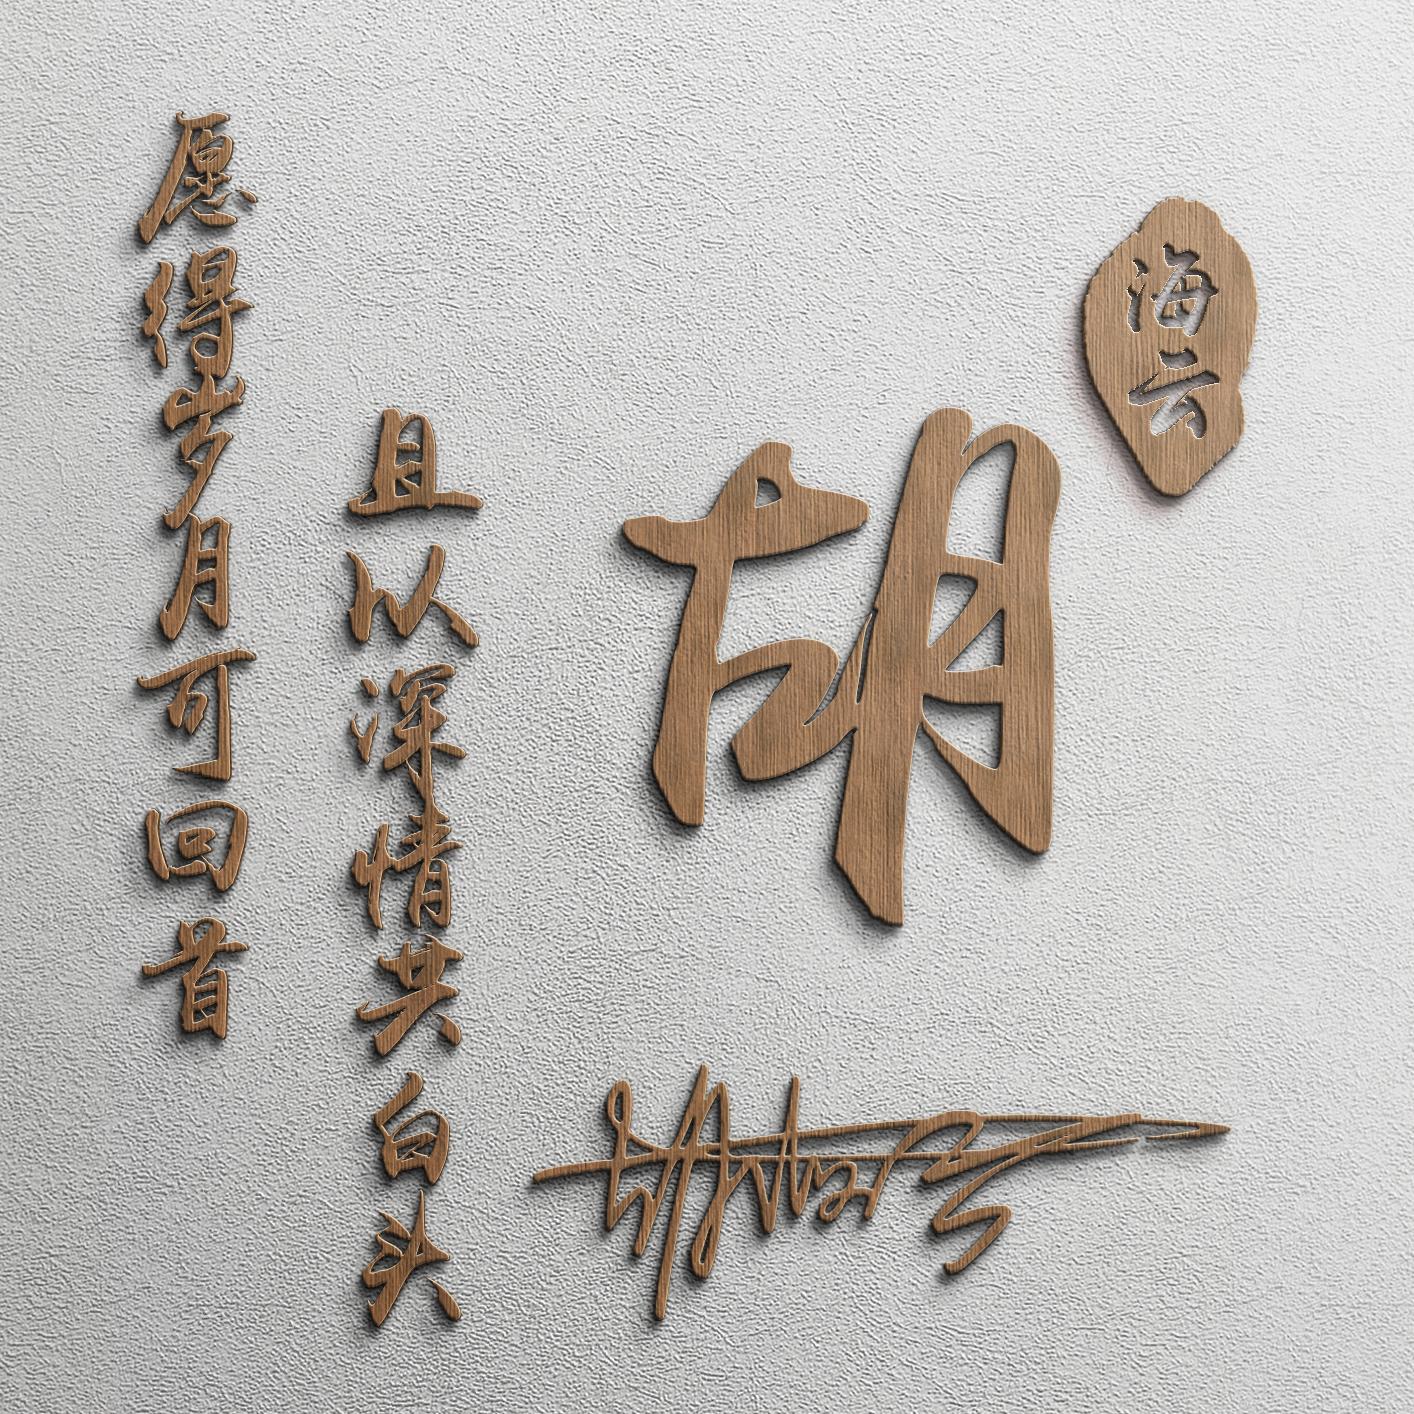 愿得岁月可回首
且以深情共白头
胡
海云